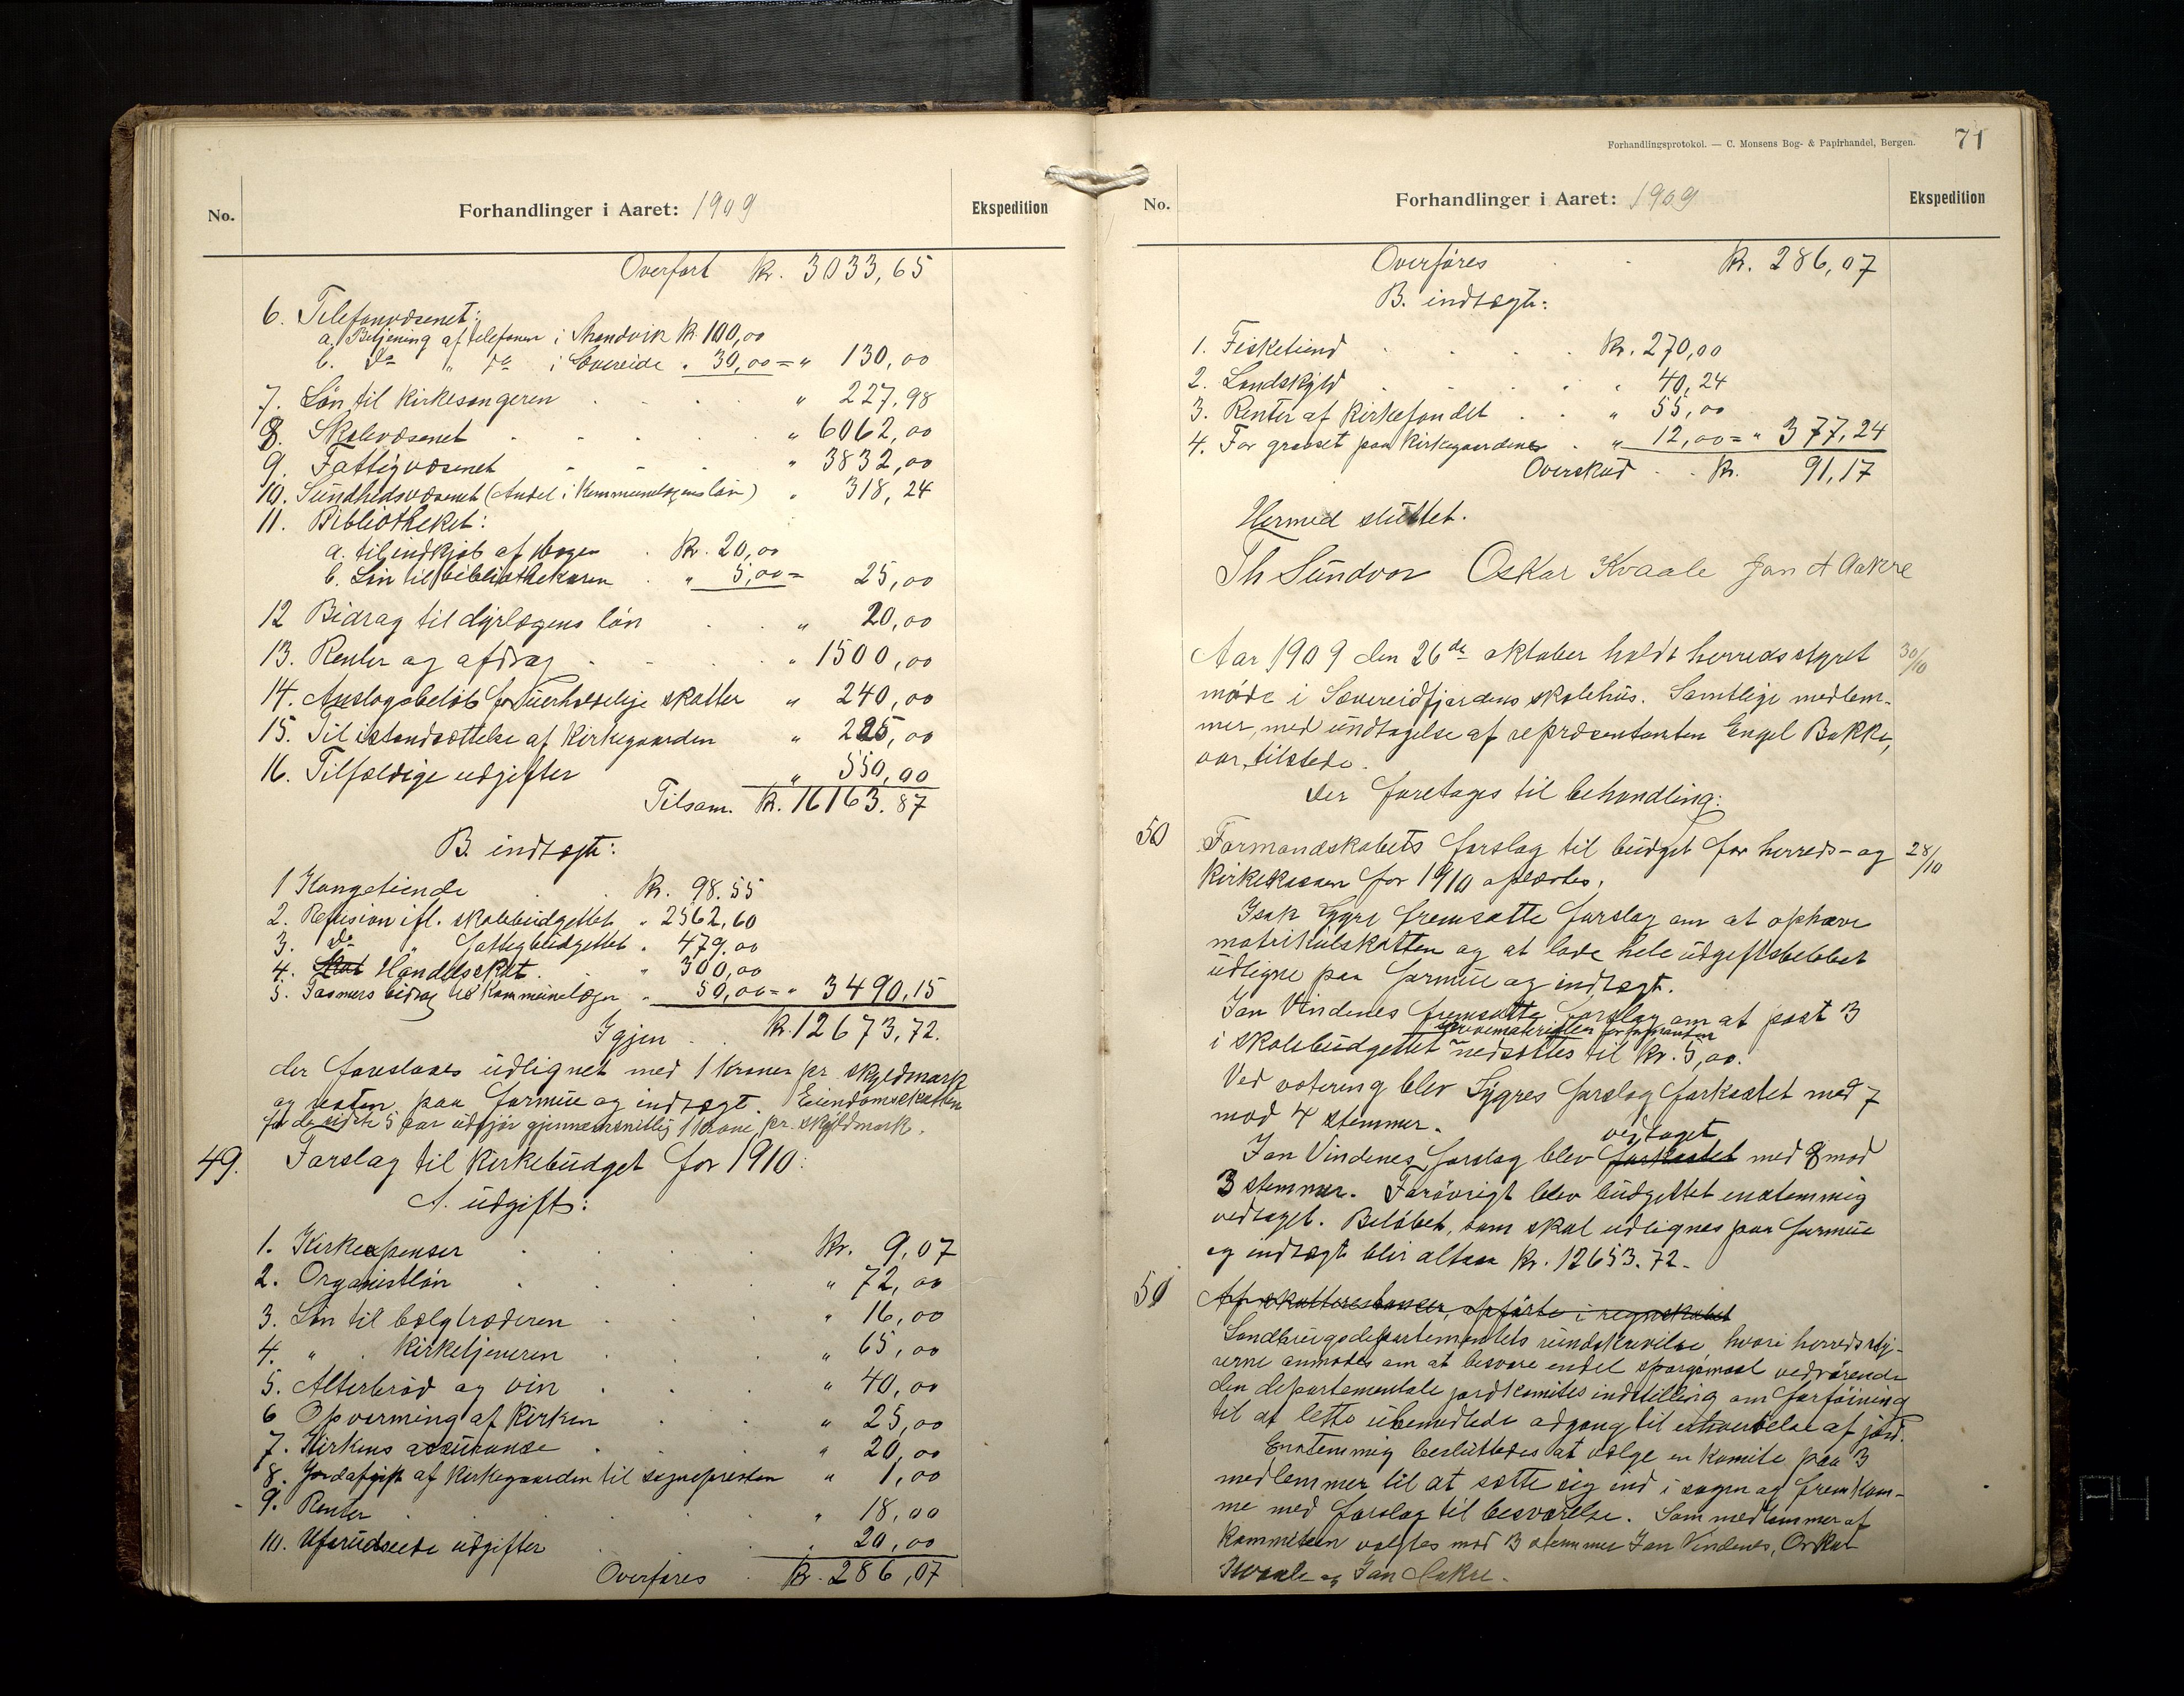 No.
Forhandlinger i Aaret: 1909
Ekspedition
Overført Kr. 3033,65
6. Telefonvæsenet:
a. Betjening af telefonen i Strandvik Kr. 100,00
b. Do " do i Sævereide " 30,00 = " 130,00
7. Løn til kirkesangeren " 227,98
8. Skolevæsenet " 6062,00
9. Fattigvæsenet " 3832,00
10. Sundhedsvæsenet (Andel i kommunelægens løn) " 318,24
11. Bibliotheket:
a. til indkjøb af bøger Kr. 20,00
b. Løn til bibliothekaren " 5,00 = 25,00
12 Bidrag til dyrlægens løn " 20,00
13. Renter og afdrag " 1500,00
14. Anslagsbeløb for uerholdelige skatter " 240,00
15. Til istandsættelse af kirkegaarden " 225,00
16. Tilfældige udgifter " 550,00
Tilsam. Kr. 16163.87
B. indtægt:
1 Kongetiende Kr. 98.55
2. Refusion ifl. skolebudgettet " 2562,60
3. do " fattigbudgettet " 479,00
4. Skat Handelsskat " 300,00
5. Samners bidrag til kommunelæge " 50,00 = " 3490,15
Igjen Kr. 12673,72.
der foreslaaes udlignet med 1 krone pr. skyldmark
og resten paa formue og indtægt. Eiendomsskatten
for de sidste 5 aar udgjør gjennemsnitlig 1 krone pr. skyldmark.
49. Forslag til kirkebudget for 1910:
A. udgift:
1. Kirkeexpenser Kr. 9,07
2. Organistløn " 72,00
3. Løn til bælgtræderen " 16,00
4. " kirketjeneren " 65,00
5. Alterbrød og vin " 40,00
6 Opvarming af kirken " 25,00
7. Kirkens assurance " 20,00
8. Jordafgift af kirkegaarden til sognepresten " 1,00
9. Renter " 18,00
10. Uforudseede udgifter " 20,00
Overføres Kr. 286,07
Forhandlingsprotokol. — C. Monsens Bog- & Papirhandel, Bergen.
71
No.
Forhandlinger i Aaret: 1909
Ekspedition
Overføres Kr. 286,07
B. indtægt:
1. Fisketiend Kr. 270,00
2. Landskyld " 40,24
3. Renter af kirkefondet " 55,00
4. For græsset paa kirkegaardene " 12,00 = " 377,24
Overskud Kr. 91,17
Hermed sluttet.
Th Sundvor Oskar Kvaale Jan A Aakre
Aar 1909 den 26de oktober holdt herredsstyret 30/10
møde i Sævereidfjordens skolehus. Samtlige medlem-
mer, med undtagelse af repræsentanten Engel Bakke,
var tilstede.
Der foretoges til behandling:
50 Formandskabets forslag til budget for herreds- og 28/10
kirkekassen for 1910 oplæstes.
Isak Sygre fremsatte forslag om at ophæve
matrikulskatten og at lade hele udgiftsbeløbet
udligne paa formue og indtægt.
Jan Vindenes fremsatte forslag om at post 3
skrivematerialier for formanden
i skolebudgettet nedsættes til Kr. 5,00.
Ved votering blev Sygres forslag forkastet med 7
mod 4 stemmer.
vedtaget
Jan Vindenes forslag blev forkastet med 8 mod
3 stemmer. Forøvrigt blev budgettet enstemmig
vedtaget. Beløbet, som skal udlignes paa formue
og indtægt blir altsaa Kr. 12653.72.
51 Af skatterestancer, opførte i regnskabet
Landbrugsdepartementets rundskrivelse, hvori herredssty-
rerne anmodes om at besvare endel spørgsmaal vedrørende
den departementale jordkomites indstilling om forføining
til at lette ubemidlede adgang til erhvervelse af jord.
Enstemmig besluttedes at vælge en komite paa 3
medlemmer til at sætte sig ind i sagen og fremkom-
me med forslag til besvarelse. Som medlemmer af
kommiteen valgtes med 3 stemmer Jan Vindenes, Oskar
Kvaale og Jan Aakre.
A4